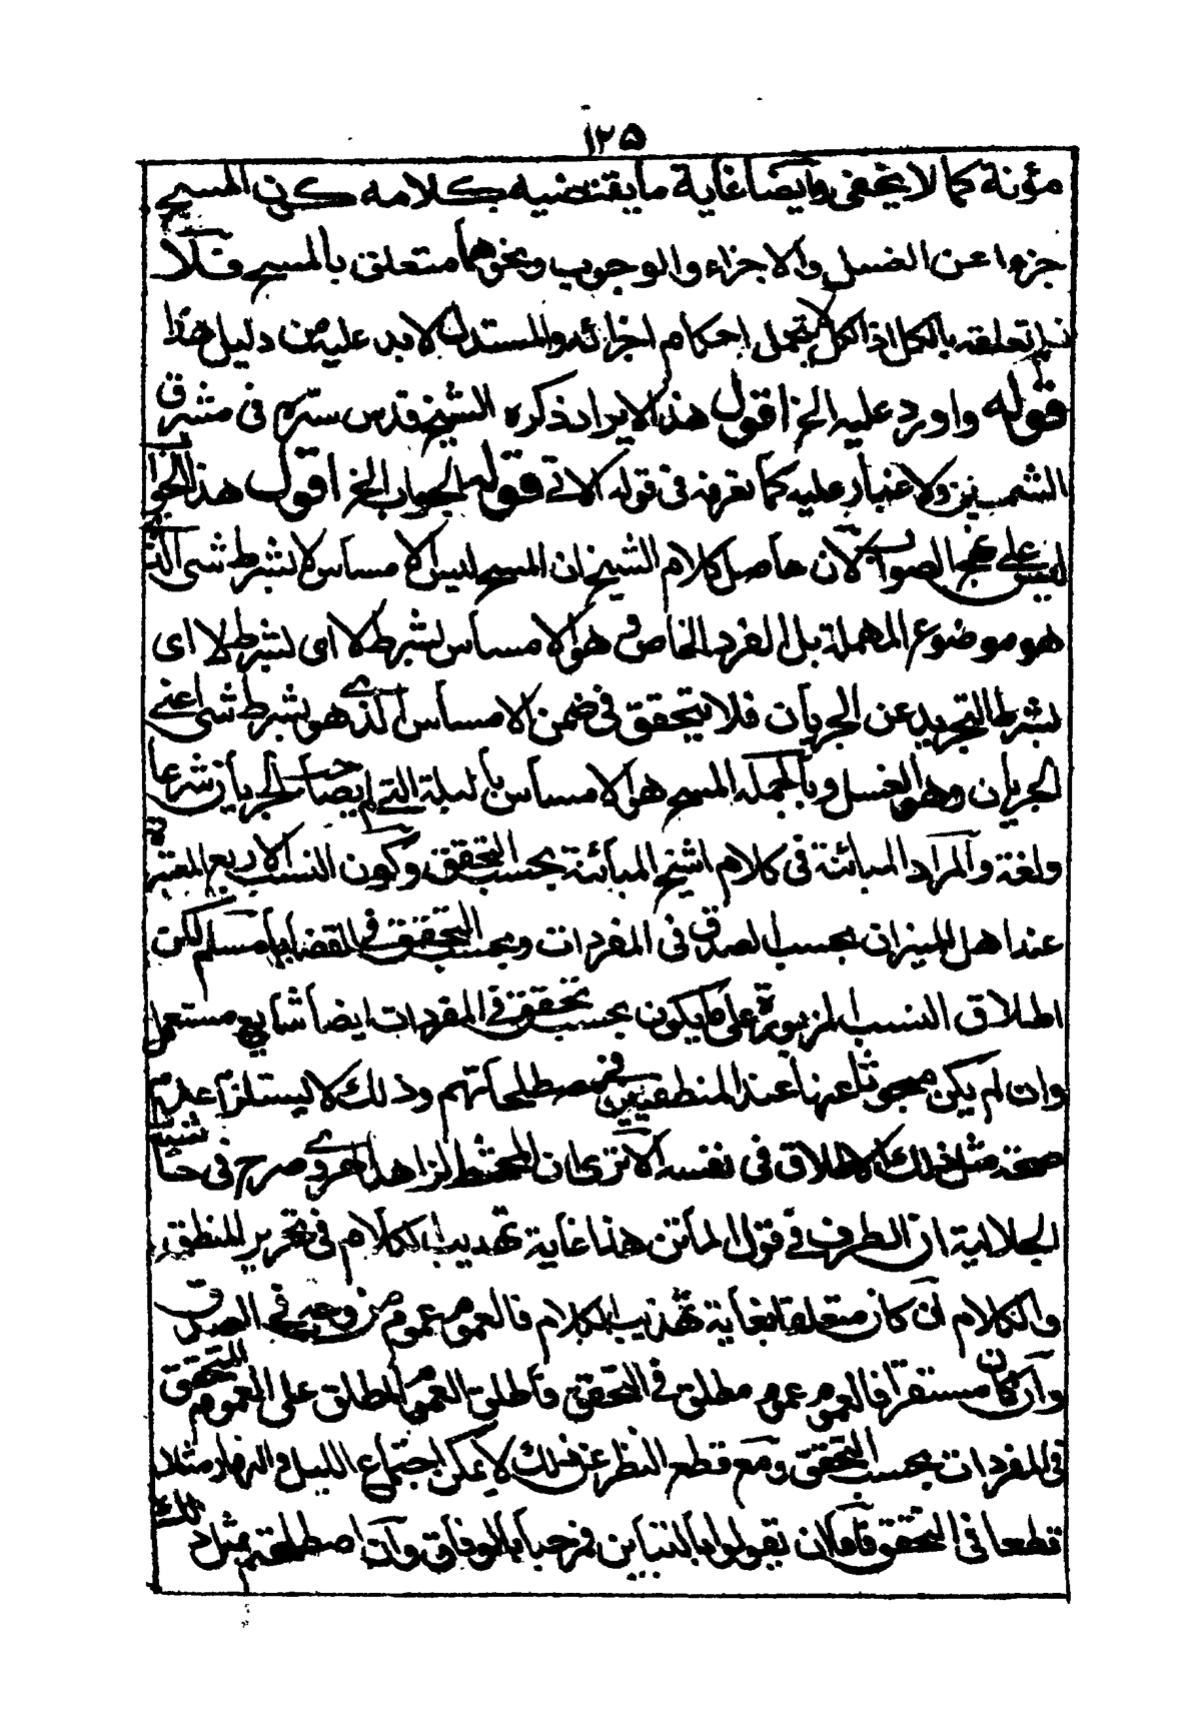 ١٢٥
مؤنة كما لا يخفى وايضا غاية ما يقتضيه كلامه كون المسح
جزءا عن الغسل والاجزاء والوجوب ونحوهما متعلق بالمسح فلا
تعلقه بالكل اذ الكل لا يتحمل احكام اجزائه والمستدل لابد عليه من دليل هذا
قوله واورد عليه الخ اقول هذا الايراد ذكره الشيخ قدس سره فى مشرق
الشمسين ولا غبار عليه كما تعرفه فى قوله الاتى قوله الجواب الخ اقول هذا الجواب
ليس على نهج الصواب لان حاصل كلام الشيخ ان المسح ليس الامساس لا بشرط شى الذى
هو موضوع المهملة بل الفرد الخاص و هو الامساس بشرط لا اى بشرط لا اى
بشرط التجريد عن الجريان فلا يتحقق فى ضمن الامساس الذى هو بشرط شى اعنى
الجريان وهو الغسل وبالجملة المسح هو الامساس بالبلة التى لم يصاحب الجريان شرعا
ولغة والمراد المبائنة فى كلام الشيخ المبائنة بحسب التحقق وكون النسب الاربع المعتبرة
عند اهل الميزان بحسب الصدق فى المفردات وبحسب التحقق فى القضايا مسلم لكن
اطلاق النسب المزبورة على ما يكون بحسب تحقق فى المفردات ايضا شايع مستعمل
وان لم يكن مبحوثا عنها عند المنطقيين فى مصطلحاتهم وذلك لا يستلزم عدم
صحة مثل ذلك الاطلاق فى نفسه الا ترى ان المحشى الزاهد الهروى صرح فى حاشية
الجلالية ان الظرف فى قول الماتن هذا غاية تهذيب الكلام فى تحرير المنطق
والكلام ان كان متعلقا بغاية تهذيب الكلام فالعموم عموم من وجه فى الصدق
وان كان مستقرا فالعموم عموم مطلق فى التحقق فاطلق العموم المطلق على العموم المتحقق
فى المفردات بحسب التحقق ومع قطع النظر عن ذلك لا يمكن اجتماع الليل والنهار مثلا
قطعا فى التحقق فاما ان يقولوا بالتباين فمرحبا بالوفاق وان اصطلحتم بمثل ذلك